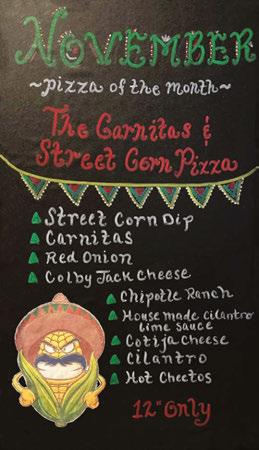 November
~pizza of the month~
The Carnitas &
Street Corn Pizza
Street Corn Dip
Carnitas
Red Onion
Colby Jack Cheese
Chipotle Ranch
House made Cilantro
lime sauce
Cotija Cheese
Cilantro
Hot Cheetos
12" Only